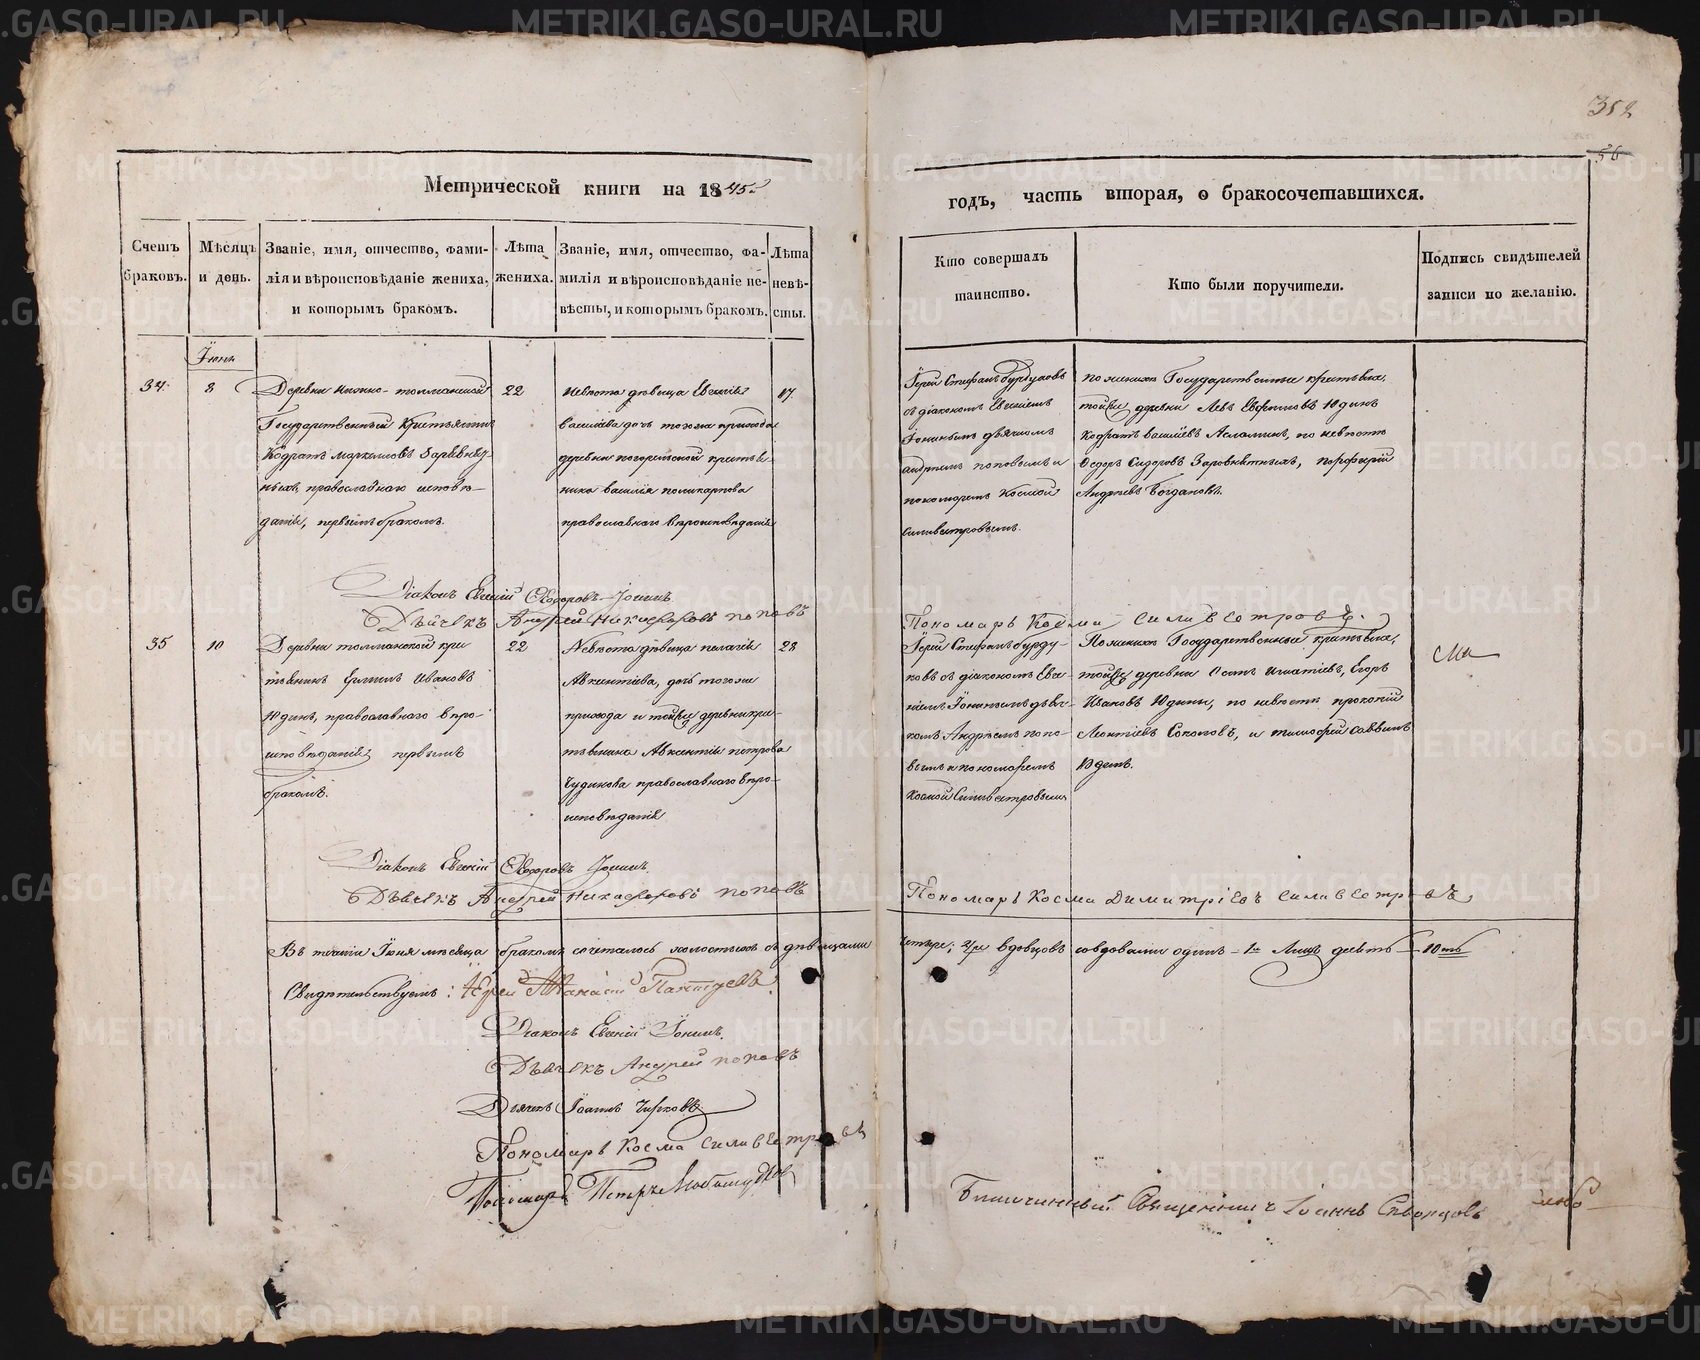 352
56
Метрической книги на 1845й
годъ, часть вторая, о бракосочетавшихся.
Счетъ браковъ.
Мѣсяцъ и день.
Званіе, имя, отчество, фами-
лія и вѣроисповѣданіе жениха,
и которымъ бракомъ.
Лѣта жениха.
Званіе, имя, отчество, фа-
милія и вѣроисповѣданіе не-
вѣсты, и которымъ бракомъ.
Лѣта невѣ-
сты.
Кто совершалъ
таинство.
Кто были поручители.
Подпись свидѣтелей
записи по желанію.
Іюнь
34.
8
Деревни Нижно-
Государственный Крестьянинъ
Кодратъ Маркеловъ
православнаго исповѣ-
данія, первымъ бракомъ.
22
Невѣста дѣвица Евгенія
Васильева дочь тогожъ прихода
деревни крестья-
нина Василія Поликарпова
православнаго вѣроисповѣданія
17
Іерей Стефанъ Бурдуковъ
съ діакономъ Евгеніемъ
Іонинымъ дьячкомъ
Андреемъ Поповымъ и
пономоремъ Космой
Сильвестровымъ.
по женихѣ Государственные крестьяна,
тойже деревни Левъ Евфимовъ Юдинъ
Кодратъ Васильевъ по невѣстѣ
Ѳедоръ Сидоровъ Порфирій
Андреевъ Богдановъ.
Діаконъ Евгеній Ѳеодоровъ Іонинъ.
Дьячекъ Андрей Никифоровъ Поповъ
Пономарь Косма Силивестровъ.
35
10
Деревни Толмацкой кре-
стьянинъ Ивановъ
Юдинъ, православнаго вѣро-
исповѣданія первымъ
бракомъ.
22
Невѣста дѣвица Пелагія
Авксентіева, дочь тогоже
прихода и тойже деревни кре-
стьянина Авксентія Петрова
Чудинова православнаго вѣро-
исповѣданія
28
Іерей Стефанъ Бурду-
ковъ съ діакономъ Евге-
ніемъ Іонинымъ дьяч-
комъ Андреемъ Попо-
вымъ и пономоремъ
Космой Сильвестровымъ
По женихѣ Государственные крестьяна,
тойже деревни Игнатіевъ, Егоръ
Ивановъ Юдины, по невѣсте Прокопій
Леонтіевъ Соколовъ, и Тимофей Саввинъ
Юдинъ.
Діаконъ Евгеній Ѳеодоровъ Іонинъ.
Дьячекъ Андрей Никифоровъ Поповъ
Пономарь Косма Димитріевъ Силивестровъ
Въ теченіи Іюня мѣсяца бракомъ сочеталось холостыхъ съ дѣвицами четыре; 4ре вдовцовъ со вдовами одинъ – 1нъ Лицъ десять – 10ть
Свидѣтельствуемъ: Іерей Аѳанасій
Діаконъ Евгеній Іонинъ.
Дьячекъ Андрей Поповъ
Дьячекъ Іоаннъ Чирковъ
Пономарь Косма Силивестровъ
Пономарь Петръ
Благочинный Священникъ Іоаннъ Скворцовъ